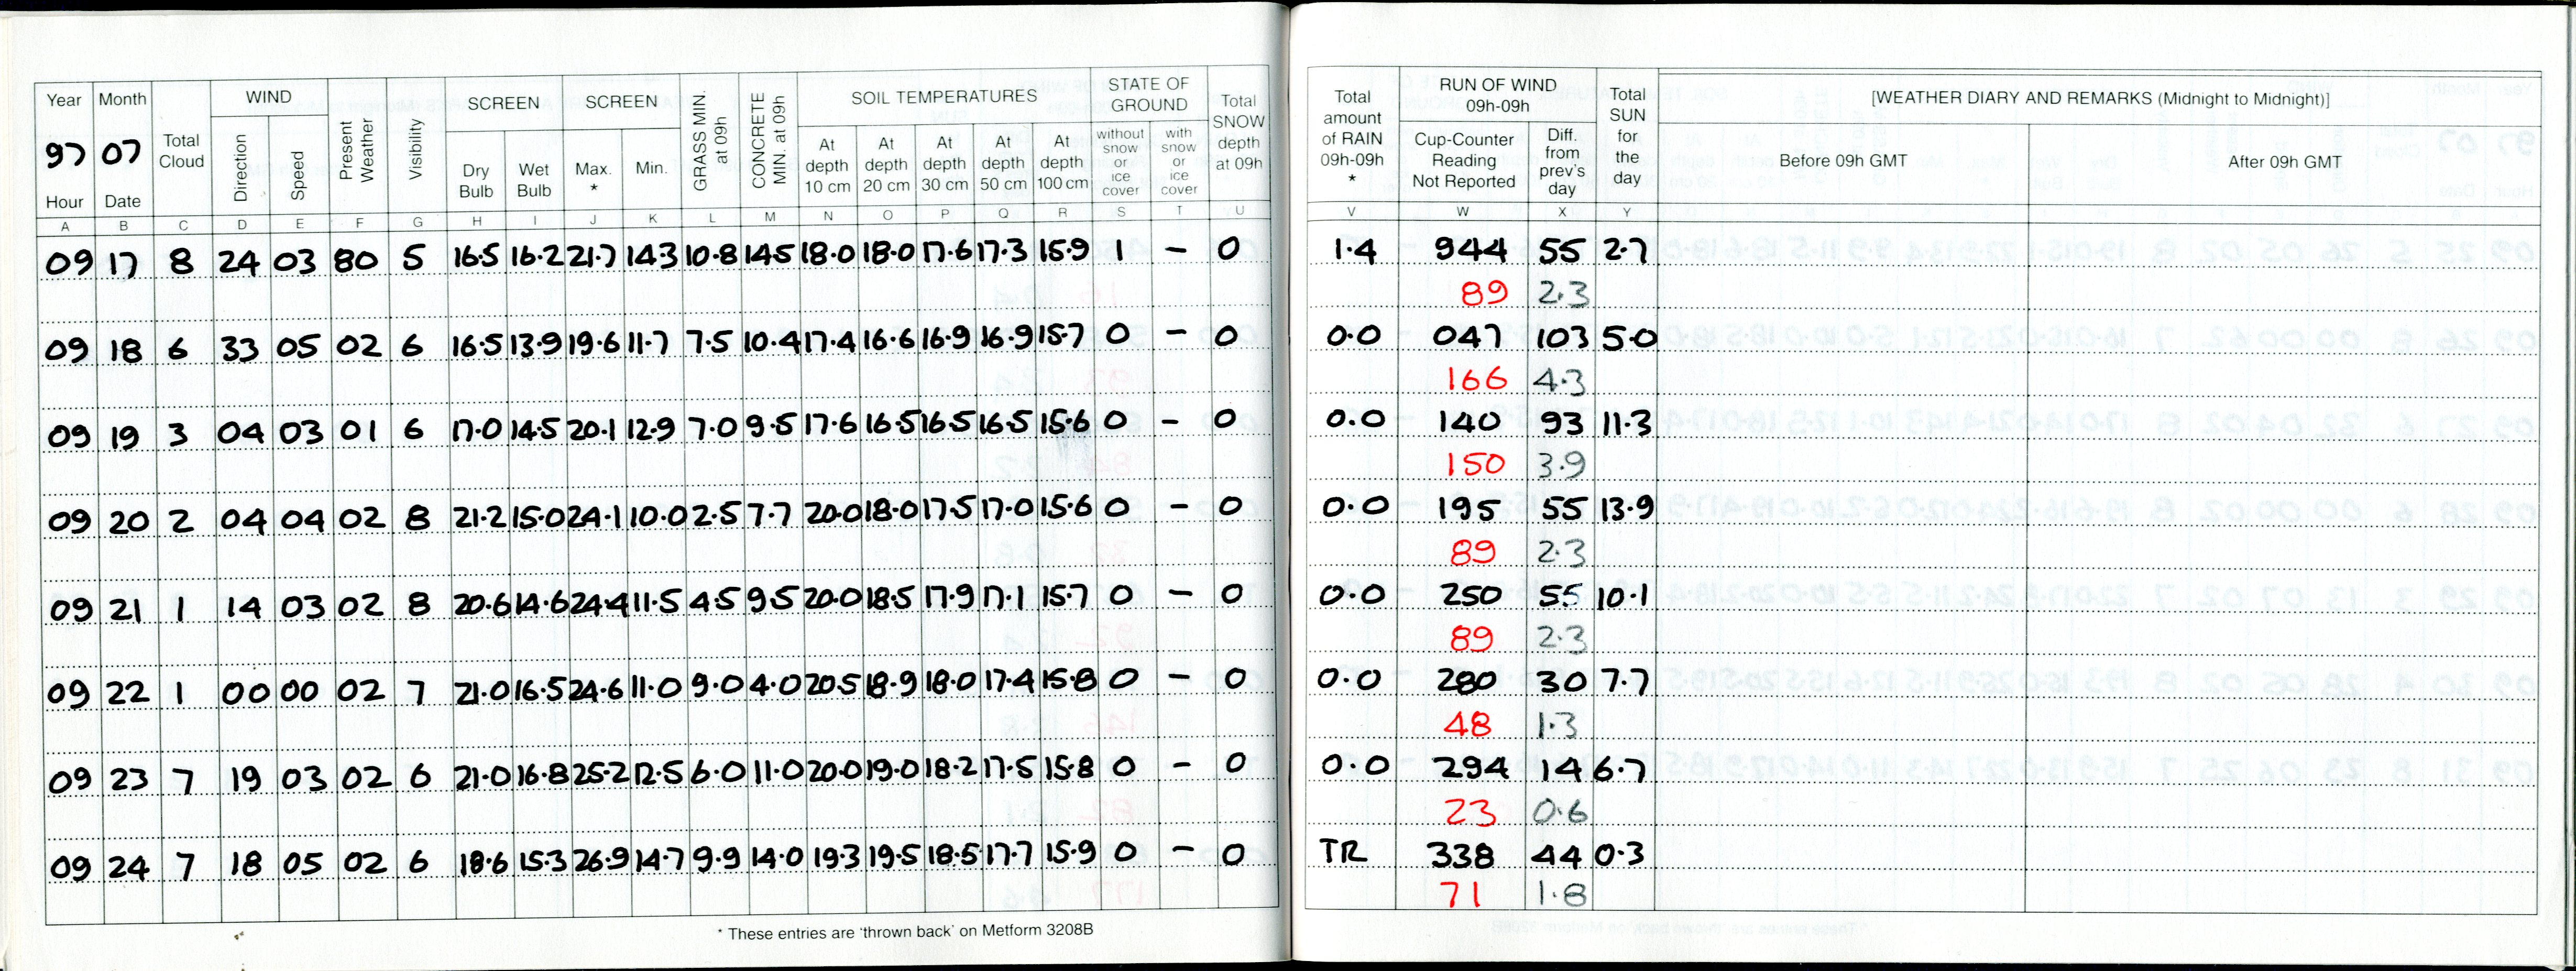 Year Month WIND SCREEN SCREEN GRASS MIN. at 09h CONCRETE MIN. at 09h SOIL TEMPERATURES STATE OF GROUND Total SNOW depth at 09h Total amount of RAIN 09h-09h * RUN OF WIND 09h-09h Total SUN for the day [WEATHER DIARY AND REMARKS (Midnight to Midnight)]
97 07 Total Cloud Direction Speed Present Weather Visibility Dry Bulb Wet Bulb Max. * Min. At depth 10 cm At depth 20 cm At depth 30 cm At depth 50 cm At depth 100 cm without snow or ice cover with snow or ice cover Cup-Counter Reading Not Reported Diff. from prev's day Before 09h GMT After 09h GMT
Hour Date
A B C D E F G H I J K L M N O P Q R S T U V W X Y
09 17 8 24 03 80 5 16.5 16.2 21.7 14.3 10.8 14.5 18.0 18.0 17.6 17.3 15.9 1 - 0 1.4 944 55 2.7
89 2.3
09 18 6 33 05 02 6 16.5 13.9 19.6 11.7 7.5 10.4 17.4 16.6 16.9 16.9 15.7 0 - 0 0.0 047 103 5.0
166 4.3
09 19 3 04 03 01 6 17.0 14.5 20.1 12.9 7.0 9.5 17.6 16.5 16.5 16.5 15.6 0 - 0 0.0 140 93 11.3
150 3.9
09 20 2 04 04 02 8 21.2 15.0 24.1 10.0 2.5 7.7 20.0 18.0 17.5 17.0 15.6 0 - 0 0.0 195 55 13.9
89 2.3
09 21 1 14 03 02 8 20.6 14.6 24.4 11.5 4.5 9.5 20.0 18.5 17.9 17.1 15.7 0 - 0 0.0 250 55 10.1
89 2.3
09 22 1 00 00 02 7 21.0 16.5 24.6 11.0 9.0 4.0 20.5 18.9 18.0 17.4 15.8 0 - 0 0.0 280 30 7.7
48 1.3
09 23 7 19 03 02 6 21.0 16.8 25.2 12.5 6.0 11.0 20.0 19.0 18.2 17.5 15.8 0 - 0 0.0 294 14 6.7
23 0.6
09 24 7 18 05 02 6 18.6 15.3 26.9 14.7 9.9 14.0 19.3 19.5 18.5 17.7 15.9 0 - 0 TR 338 44 0.3
71 1.8
* These entries are 'thrown back' on Metform 3208B